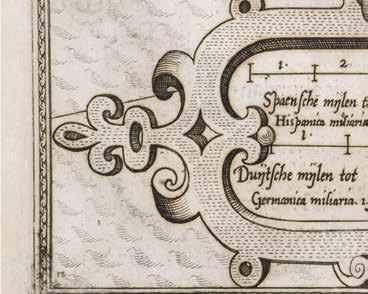 1. 2
Spaensche mijlen t
Hispanica miliaria
1.
Duijtsche mijlen tot
Germanica miliaria. 1
12